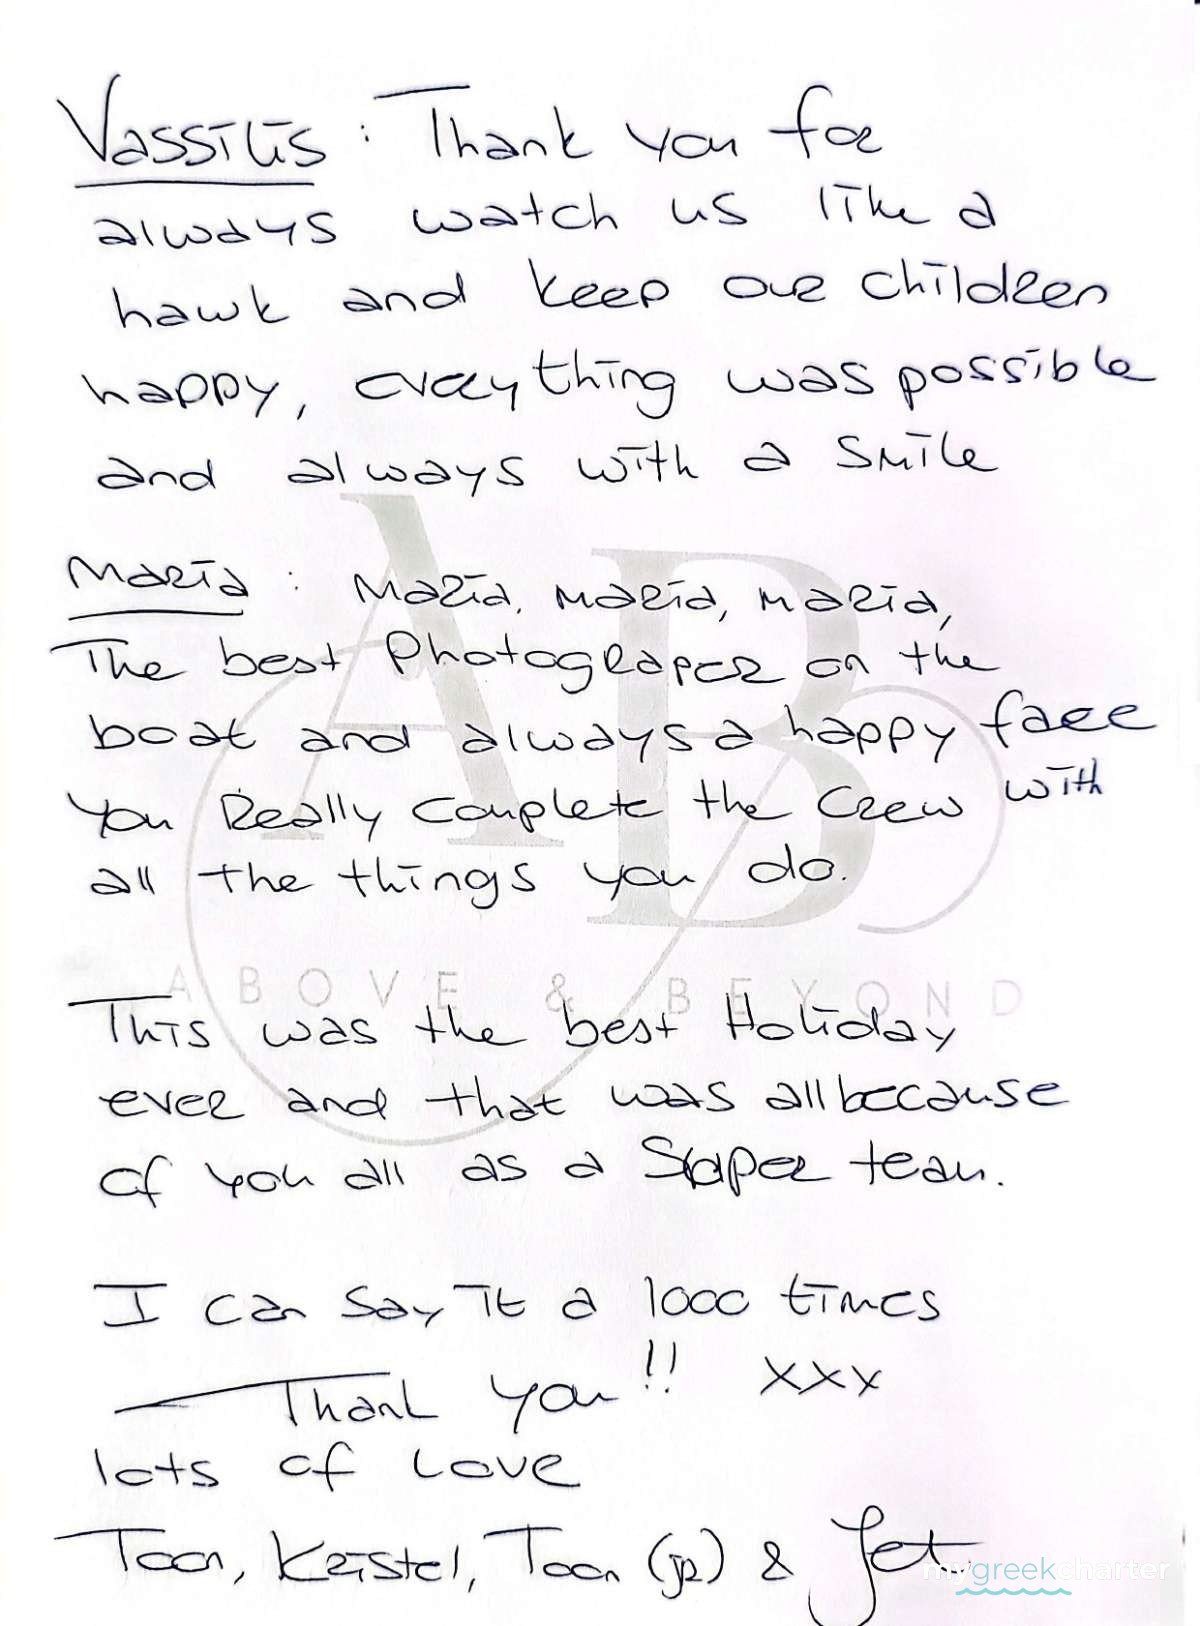 Vassilis : Thank you for
always watch us like a
hawk and keep our children
happy, everything was possible
and always with a smile
Maria : Maria, Maria, Maria,
The best Photograper on the
boat and always a happy face
You Really complete the crew with
all the things you do.
ABOVE & BEYOND
This was the best Holiday
ever and that was all because
of you all as a Super team.
I can say it a 1000 times
Thank you!! xxx
lots of Love
Toon, Kristel, Toon (jr) & Jet
mygreekcharter